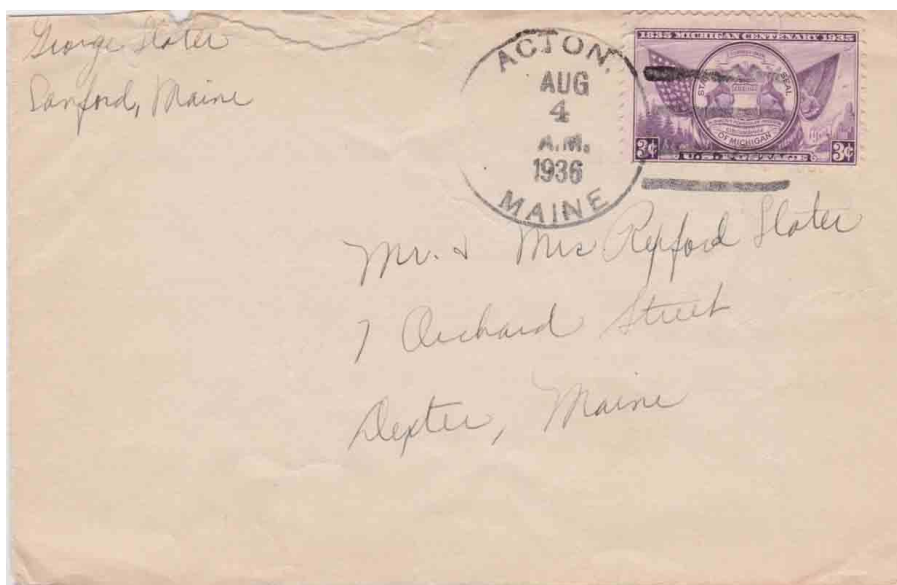 George Slater
Sanford, Maine
ACTON.
AUG
4
A.M.
1936
MAINE
1835 MICHIGAN CENTENARY 1935
SEAL
OF MICHIGAN
3¢ U.S. POSTAGE 3¢
Mr. & Mrs Rexford Slater
7 Orchard Street
Dexter, Maine